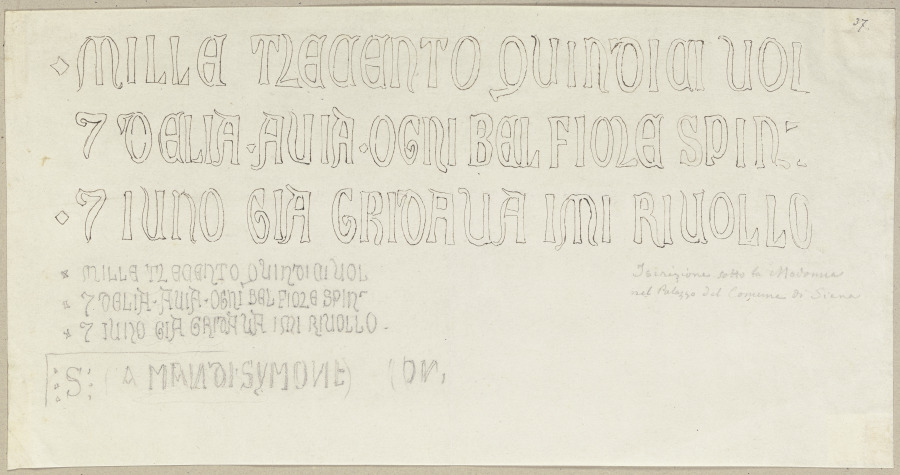 37.
⋄ MILLE TRECENTO QUINDICI VOL
7 DELIA · AVIA · OGNI BEL FIORE SPIN-
⋄ 7 IUNO GIA GRIDAVA IMI RIVOLLO
MILLE TRECENTO QUINDICI VOL
7 DELIA · AVIA · OGNI BEL FIORE SPIN-
7 IUNO GIA GRIDAVA IMI RIVOLLO -
Iscrizione sotto la Madonna
nel Palazzo del Comune di Siena
:S: (A MAN DI SYMONE)